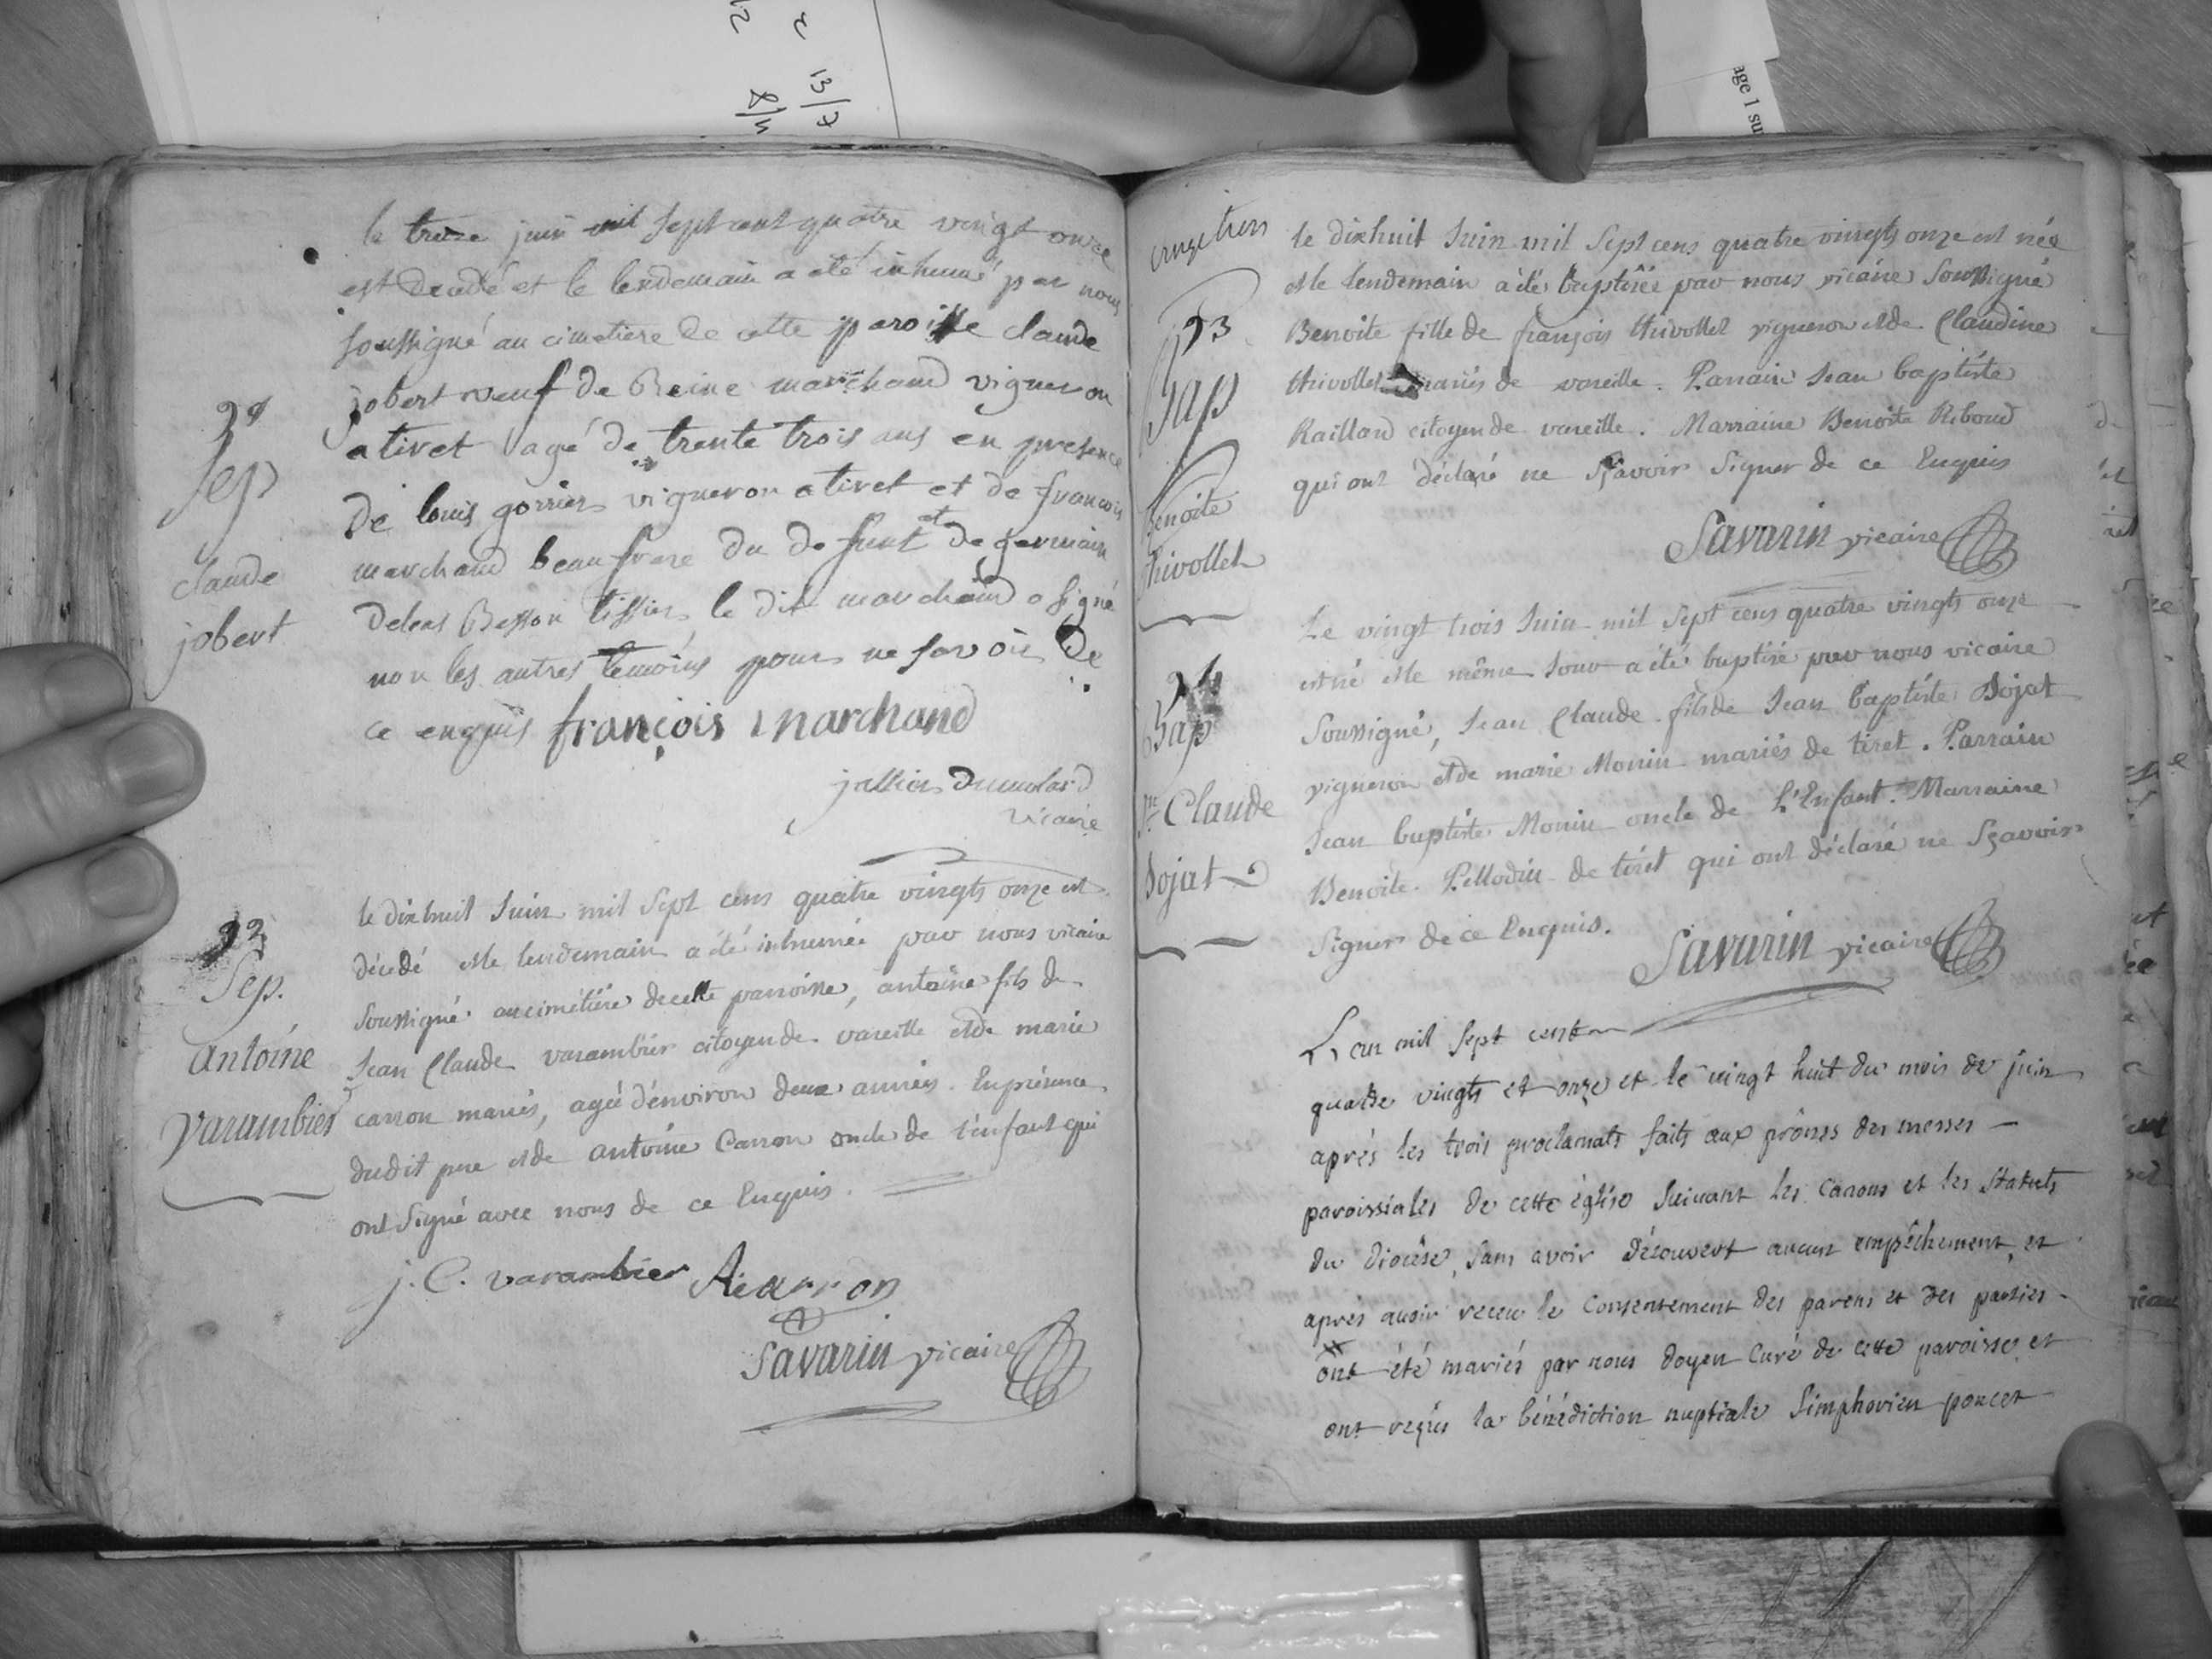 13/7
8/11
age 1 su
le treize juin mil sept cent quatre vingt onze
est decedé et le lendemain a eté inhumé par nous
soussigné au cimetiere de cette paroisse claude
jobert veuf de Reine marchand vigneron
a tiret agé de trente trois ans en presence
de louis gorrier vigneron a tiret et de francois
marchand beaufrere du defunt et de germain
Besson tissier le dit marchand a signé
non les autres temoins pour ne savoir de
ce enquis françois marchand
jullien dumolard
vicaire
Sep
claude
jobert
le dixhuit Juin mil Sept cens quatre vingts onze est
décedé et le lendemain a été inhumée par nous vicaire
Soussigné au cimétiere de cette paroisse, antoine fils de
Jean Claude varambier citoyen de vareille et de marie
carron mariés, agée d'environ deux années. En présence
dudit pere et de antoine Carron oncle de l'enfant qui
ont Signé avec nous de ce Enquis.
j. C. varambier Acarron
Savarin vicaire
92
Sep.
antoine
varambier
93
Bap
Benoite
thivollet
le dixhuit Juin mil Sept cens quatre vingts onze est née
et le lendemain a été baptisée par nous vicaire Soussigné
Benoite fille de françois thivollet vigneron et de Claudine
thivollet mariés de vareille. Parrain Jean baptiste
Raillard citoyen de vareille. Marraine Benoite Riboud
qui ont déclaré ne Sçavoir Signer de ce Enquis
Savarin vicaire
Le vingt trois Juin mil Sept cens quatre vingts onze
est né et le même Jour a été baptisé par nous vicaire
Soussigné, Jean Claude fils de Jean baptiste Dojat
vigneron et de marie Monin mariés de tiret. Parrain
Jean baptiste Monin oncle de L'Enfant. Marraine
Benoite Pellodin de tiret qui ont déclaré ne Sçavoir
Signer de ce Enquis.
Savarin vicaire
Bap
Jn Claude
Dojat
L'an mil Sept cent
quatre vingts et onze et le vingt huit du mois de juin
après les trois proclamats faits aux prônes des messes
paroissiales de cette église Suivant les Canons et les Statuts
du diocèse, Sans avoir découvert aucun empêchement, et
après avoir receu le Consentement des parens et des parties
ont été mariés par nous doyen Curé de cette paroisse et
ont reçus la bénédiction nuptiale Simphorien poncet